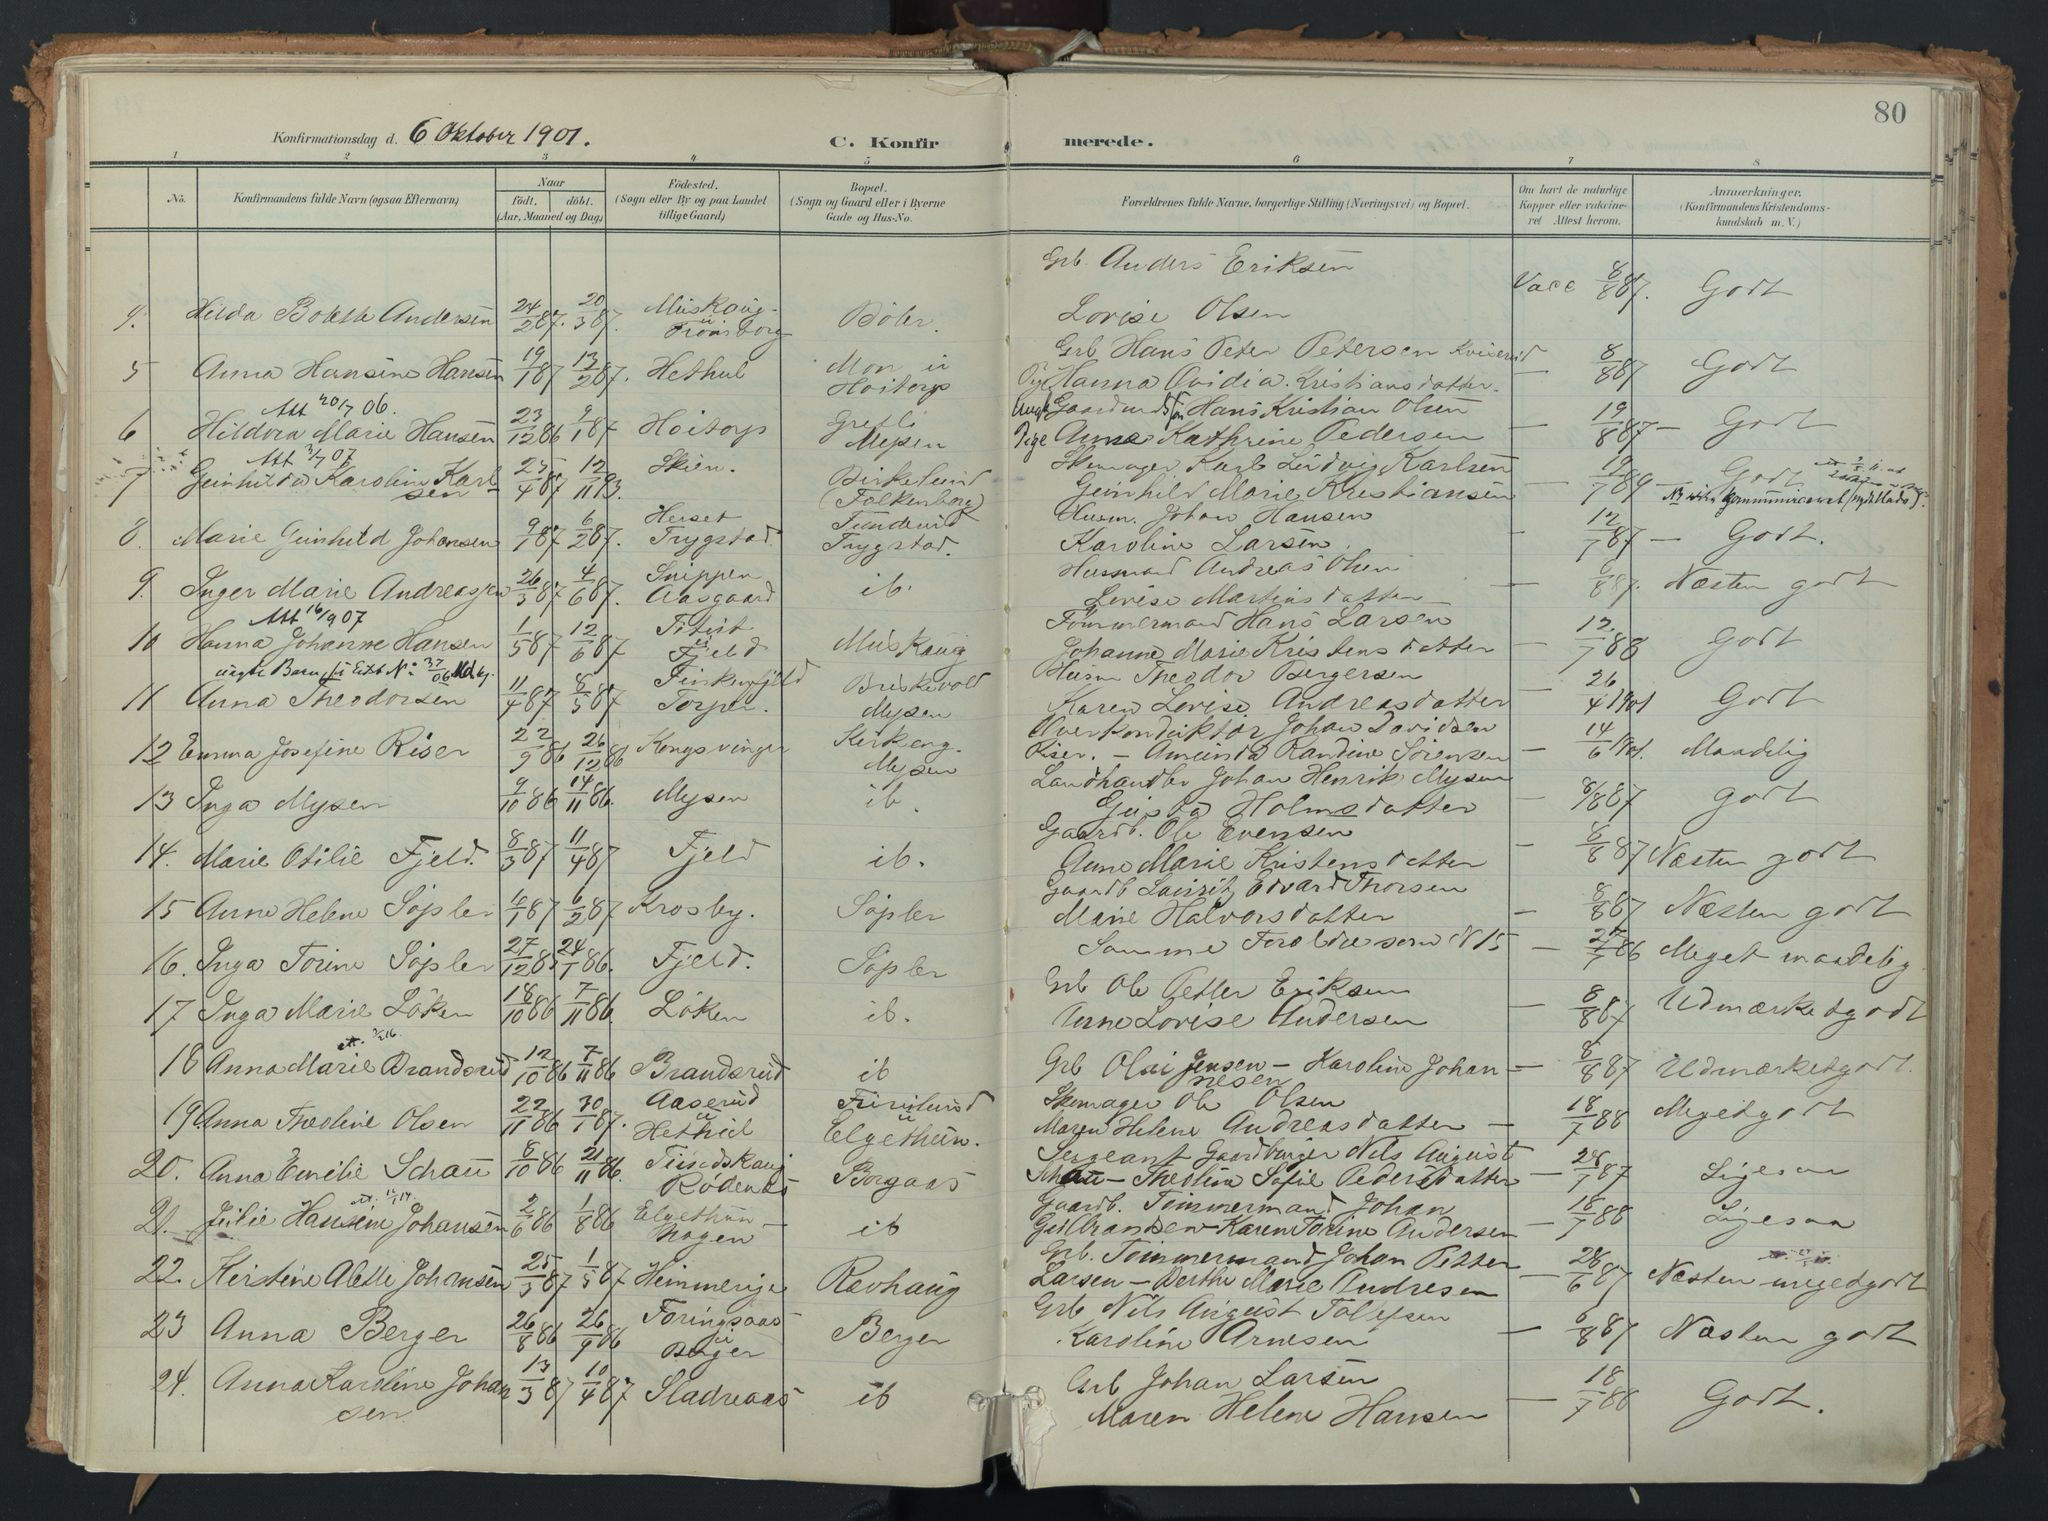 80
Konfirmationsdag d. 6 Oktober 1901.
C. Konfir merede.
1 2 3 4 5 6 7 8
No. Konfirmandens fulde Navn (ogsaa Efternavn) Naar födt. döbt. (Aar, Maaned og Dag) Födested. (Sogn eller By og paa Landet tillige Gaard) Bopæl. (Sogn og Gaard eller i Byerne Gade og Hus-No. Forældrenes fulde Navne, borgerlige Stilling (Næringsvei) og Bopæl. Om havt de naturlige Kopper eller vakcineret Attest herom. Anmærkninger. (Konfirmandens Kristendomskundskab m. V.)
Grb. Anders Eriksen
4. Hilda Bolette Andersen 24/2 87. 20/3 87. Böler. Lovise Olsen Vacc 8/8 87. Godt
Grb Hans Peter Petersen
5 Anna Hansine Hansen 19/1 87 13/2 87. Hethul Mon u Hoitorp Hanna Ovidia Kristiansdatter. — 8/8 87 Godt
Att 20/7 06.
6 Hildora Marie Hansen 23/12 86 9/1 87 Hoitorp Mysen Hans Kristian Olsen
Pige Anne Kathrine Pedersen — 19/8 87 — Godt
Att 3/7 07
7 Gunhilda Karoline Karlsen 25/4 87 12/11 93. Skien. Birkelund (Falkenborg) Skomager Karl Ludvig Karlsen
Gunhild Marie Kristiansen — 19/7 89 — Godt
8. Marie Gunhild Johansen 9/1 87 6/2 87. Herset Trygstad. Trygstad. Husm. Johan Hansen
Karoline Larsen. — 12/7 87 — Godt.
9. Inger Marie Andreassen 26/3 87 4/6 87. Snippen Aasgaard ib. Husmand Andreas Olsen
Lovise Martinsdatter — 87. Næsten godt
Att 16/9 07
10 Hanna Johanne Hansen 1/5 87 12/6 87 Fjeld Muskaug Tömmermand Hans Larsen
Johanne Marie Kristensdatter — 12/7 88 Godt
11 Anna Theodorsen 11/4 87 8/5 87 Torper. Briskevold Mysen Husm Theodor Bergersen
Karen Lovise Andreasdatter — 26/4 1901 Godt
12 Emma Josefine Riser 22/9 86 26/12 86 Kongsvinger Kirkeng. Mysen Overkonduktör Johan Davidsen
Riser. — Amunda Randine Sörensen — 14/6 1901. Maadelig
13 Inga Mysen 9/10 86 14/11 86. Mysen ib. Landhandler Johan Henrik Mysen
Holmsdatter — 8/8 87 godt
14. Marie Otilie Fjeld. 8/3 87 11/4 87 Fjeld ib. Gaardb. Ole Evensen
Anne Marie Kristensdatter — 8/8 87 Næsten godt
15 Anne Helene Söpler 6/1 87 6/2 87 Krosby. Söpler Gaardb Lauritz Edvard Thorsen
Marie Halvorsdatter — 8/8 87 Næsten godt
16. Inga Torine Söpler 27/12 85 24/1 86. Fjeld. Söpler Samme Foreldre som N 15 — 86 Meget maadelig
17 Inga Marie Löken 18/10 86 7/11 86. Löken ib. Grb Ole Petter Eriksen
Anne Lovise Andersen — 8/8 87 Udmærketgodt
18 Anna Marie Brandsrud 12/10 86 7/11 86 Brandsrud ib Grb Olai Jensen — Karoline Johannesen — 8/8 87 Udmærketgodt.
19. Anna Theoline Olsen 22/11 86 30/1 87. Aaserud u Hethul Frislund u Elgetun. Skomager Ole Olsen
Maren Helene Andreasdatter — 18/7 88 Megetgodt
20. Anna Emilie Schau 8/10 86 21/11 86. Rödenæs Borgaas Sergeant Gaardbruger Nils August
Schau — Theoline Sofie Pedersdatter — 28/7 87 Ligesaa
21. Julie Hansine Johansen 2/6 86 1/8 86 Elgetun Skogen ib Gaardb. Tömmermand Johan
Gulbransen — Karen Torine Andersen — 18/7 88 Ligesaa
22. Kirstine Alette Johansen 25/3 87 1/5 87 Himmerige Ravhaug Grb. Tömmermand Johan Petter
Larsen — Berthe Marie Andresen — 28/6 87 Næsten megetgodt
23 Anna Berger 26/8 86 26/9 86 Foringsaas u Berger Berger Grb Nils August Tolefsen
Karoline Arnesen — 8/8 87 Næsten godt
24. Anna Karoline Johansen 13/3 87 10/4 87 Sladreaas ib Grb Johan Larsen
Maren Helene Hansen — 18/7 88 Godt.